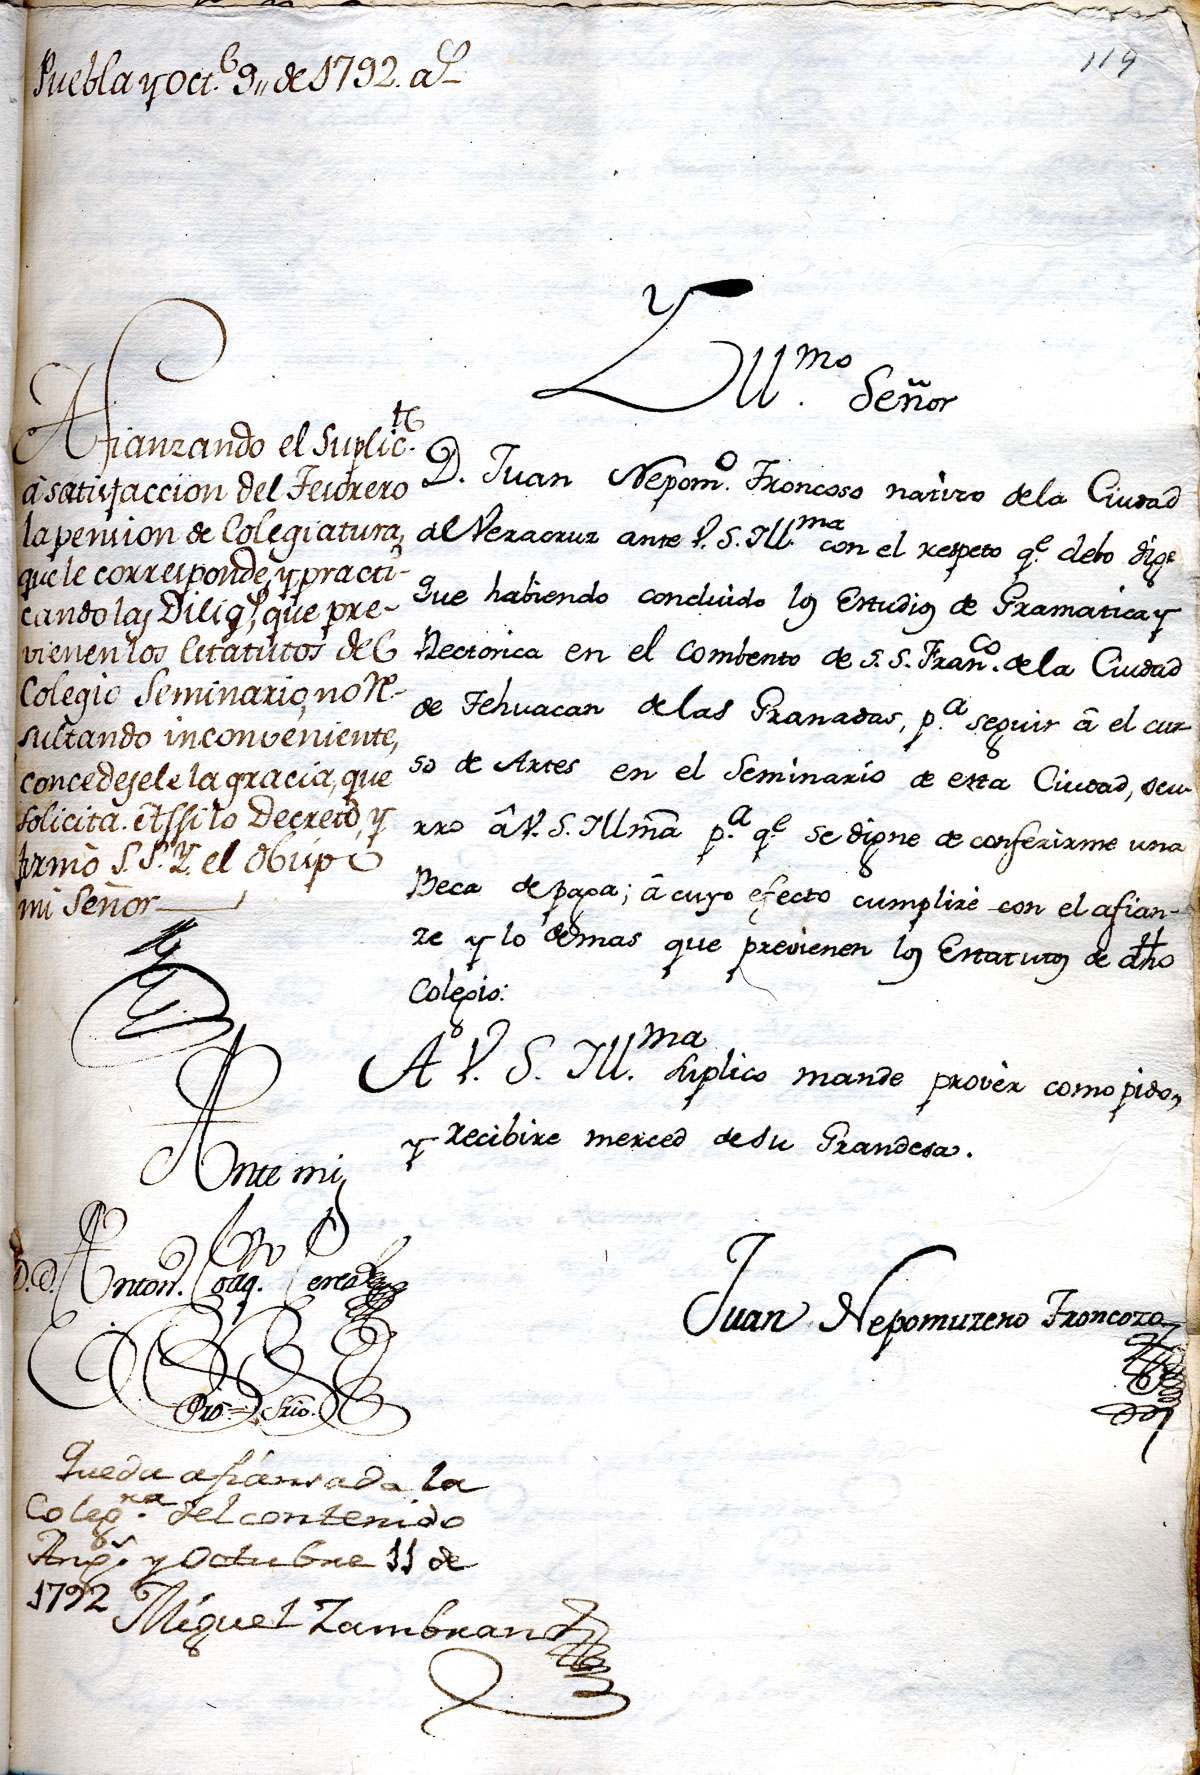 119
Puebla y Oct.e 9,, de 1792. a.s
Yll.mo
Señor
D. Juan Nepom.o Troncoso nativo de la Ciudad
de Veracruz ante V. S. Ill.ma con el respeto q.e debo digo
Que habiendo concluido los Estudios de Gramatica y
Rectorica en el Combento de S. S. Fran.co de la Ciudad
de Tehuacan de las Granadas, p.a seguir â el cur-
so de Artes en el Seminario de esta Ciudad, ocu-
rro â V. S. Illmã p.a q.e se digne de conferirme una
Beca de paga; â cuyo efecto cumplirè con el afian-
ze y lo demas que previenen los Estatutos de dho
Colegio:
A V. S. Ill.ma suplico mande provèr como pido,
y recibire merced de su Grandesa.
Juan Nepomuzeno Troncozo
Afianzando el Suplic.te
â satisfaccion del Tesorero
la pension de Colegiatura,
que le corresponde, y practi-
cando las Dilig.s, que pre-
vienen los Estatutos del
Colegio Seminario, no re-
sultando inconveniente,
concedesele la gracia, que
solicita. Assi lo Decretò, y
firmò S.S.Y. el Obispo
mi Señor
Ante mi,
D.D. Anton. Joaq.
Pro= Srio.
Queda afiansada la
Coleg.ra del contenido
Ang.s y Octubre 11 de
1792
Miguel Zambrano